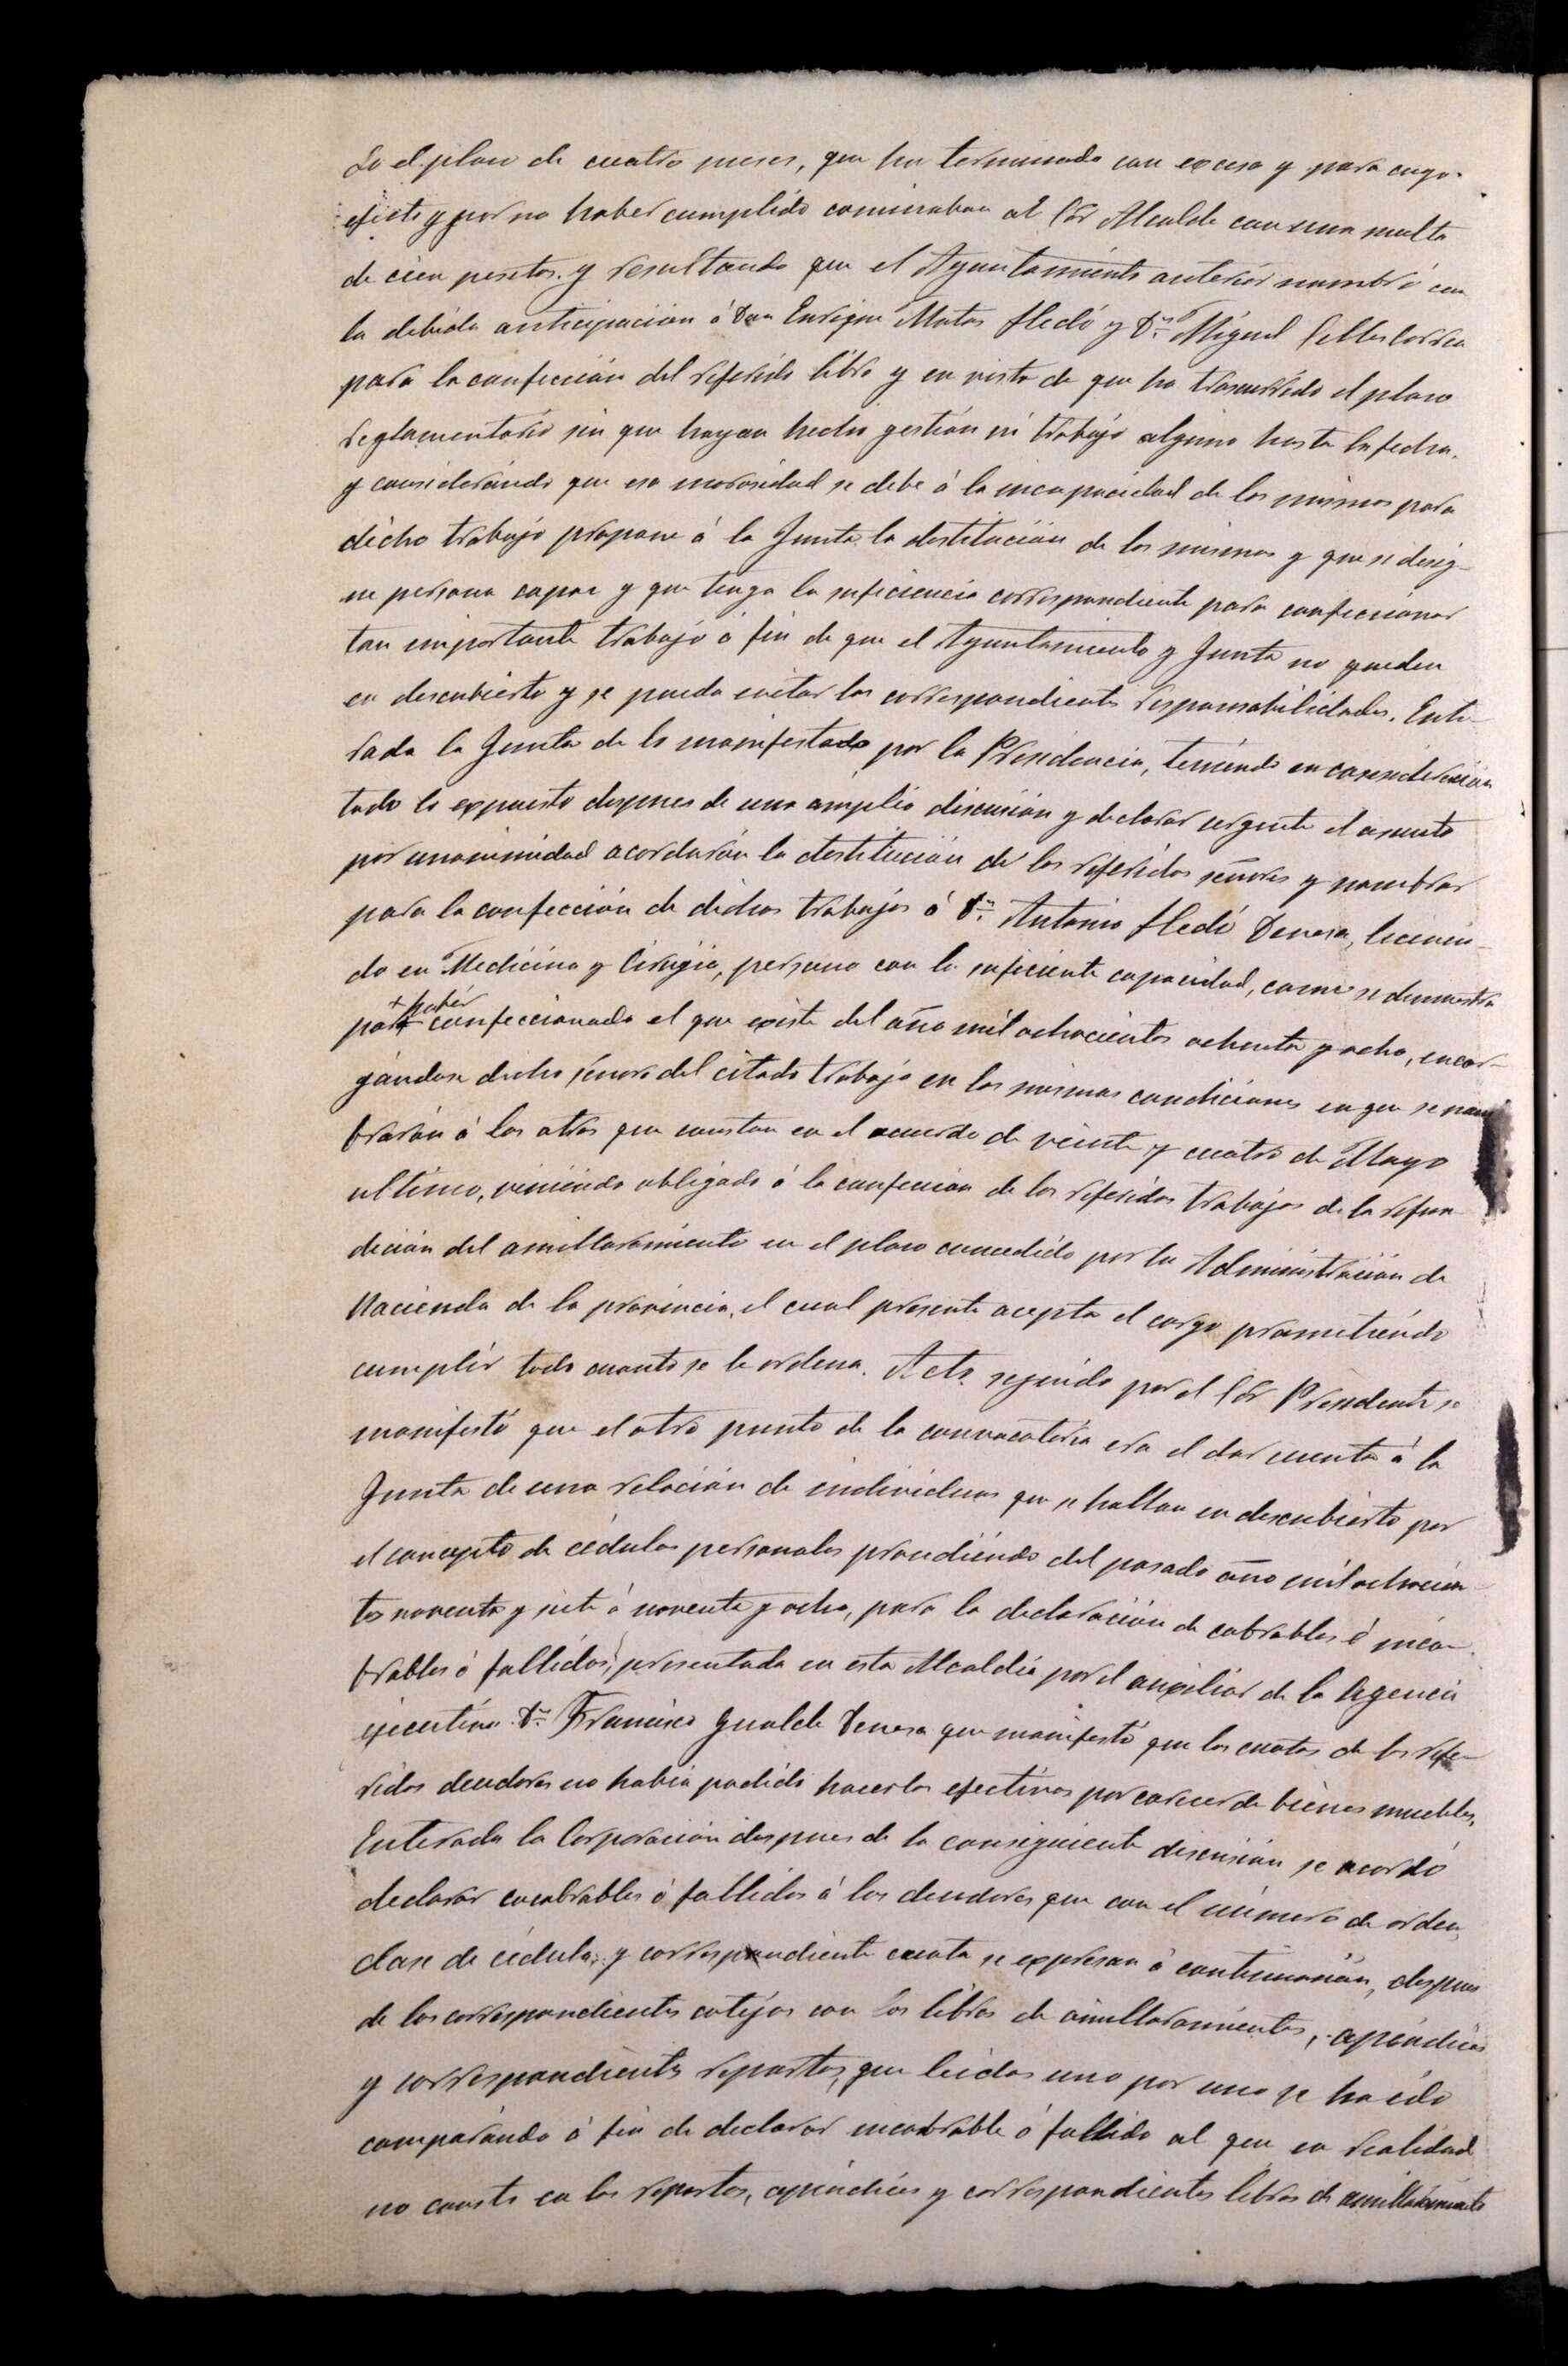 do el plazo de cuatro meses, que ha terminado con exceso y para cuyo
efecto y por no haber cumplido conminaban al Sor Alcalde con una multa
de cien pesetas. y resultando que el Ayuntamiento anterior nombró con
la debida anticipación á Don Enrique Matas Lledó y Dn. Miguel
para la confección del referido libro y en vista de que ha trascurrido el plazo
reglamentario sin que hayan hecho gestión ni trabajo alguno hasta la fecha.
y considerando que esa morosidad se debe á la incapacidad de los mismos para
dicho trabajo propone á la Junta la destitución de los mismos y que se desig-
ne persona capaz y que tenga la suficiencia correspondiente para confeccionar
tan importante trabajo á fin de que el Ayuntamiento y Junta no queden
en descubierto y se pueda evitar las correspondientes responsabilidades. Ente-
rada la Junta de lo manifestado por la Presidencia, teniendo en consideración
todo lo expuesto despues de una amplia discusión y declarar urgente el asunto
por unanimidad acordarón la destitución de los referidos señores y nombrar
para la confección de dichos trabajos á Dn. Antonio Lledó Devesa, licencia-
do en Medicina y Cirugia, persona con la suficiente capacidad, como se demuestra
por + haber confeccionado el que existe del año mil ochocientos ochenta y ocho, encar-
gándose dicho señor del citado trabajo en las mismas condiciones en que se nom
brarón á los otros que constan en el acuerdo de veinte y cuatro de Mayo
ultimo, viniendo obligado á la confección de los referidos trabajos de la refun
dición del amillaramiento en el plazo concedido por la Administración de
Hacienda de la provincia, el cual presente acepta el cargo prometiendo
cumplir todo cuanto se le ordena. Acto seguido por el Sor Presidente se
manifestó que el otro punto de la convocatoria era el dar cuenta á la
Junta de una relación de individuos que se hallan en descubierto por
el concepto de cédulas personales procediendo del pasado año mil ochocien-
tos noventa y siete á noventa y ocho, para la declaración de cobrables é inco-
brables ó fallidos, presentada en esta Alcaldia por el auxiliar de la Agencia
ejecutiva Dn. Francisco Gualde Devesa que manifestó que las cuotas de los refe-
ridos deudores no habia podido hacerlas efectivas por carecer de bienes muebles.
Enterada la Corporación despues de la consiguiente discusión se acordó
declarar incobrables ó fallidos á los deudores que con el número de orden
clase de cédula, y correspondiente cuota se expresan á continuación, despues
de los correspondientes cotejos con los libros de amillaramientos, apendices
y correspondientes repartos, que leidos uno por uno se ha ido
comparando á fin de declarar incobrable ó fallido al que en realidad
no conste en los repartos, apéndices y correspondientes libros de amillaramiento